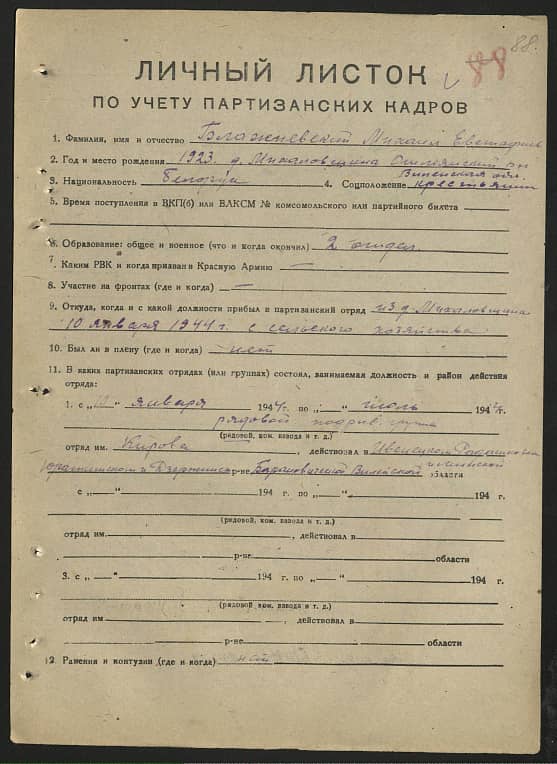 88.
88
ЛИЧНЫЙ ЛИСТОК
ПО УЧЕТУ ПАРТИЗАНСКИХ КАДРОВ
1. Фамилия, имя и отчество Блажневский Михаил
2. Год и место рождения 1923. д. Михаловщина Ошмянский р-н
Виленская обл.
3. Национальность Белорус 4. Соцположение крестьянин
5. Время поступления в ВКП(б) или ВЛКСМ № комсомольского или партийного билета
6. Образование: общее и военное (что и когда окончил) 2 отдел.
7. Каким РВК и когда призван в Красную Армию —
8. Участие на фронтах (где и когда) —
9. Откуда, когда и с какой должности прибыл в партизанский отряд из д. Михаловщина
10 января 1944 г. с сельского хозяйства
10. Был ли в плену (где и когда) нет
11. В каких партизанских отрядах (или группах) состоял, занимаемая должность и район действия
отряда:
1. с „10“ января 1944 г. по „ “ июль 1944 г.
рядовой подрыв. группа
(рядовой, ком. взвода и т. д.)
отряд им. Кирова, действовал в Ивенецком
и Дзержинск р-не Барановической Вилейской области
с „ — “ 194 г. по „ — “ 194 г.
(рядовой, ком. взвода и т. д.)
отряд им. , действовал в
р-не области
3. с „ — “ 194 г. по „ — “ 194 г.
(рядовой, ком. взвода и т. д.)
отряд им , действовал в
р-не области
2. Ранения и контузии (где и когда) нет